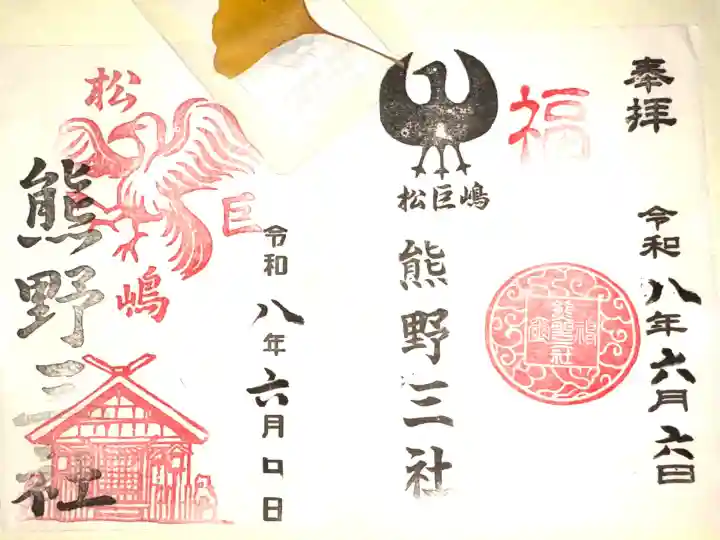 奉拝
令和八年六月六日
福
松巨嶋
熊野三社
令和八年六月口日
松
巨
嶋
熊野三社